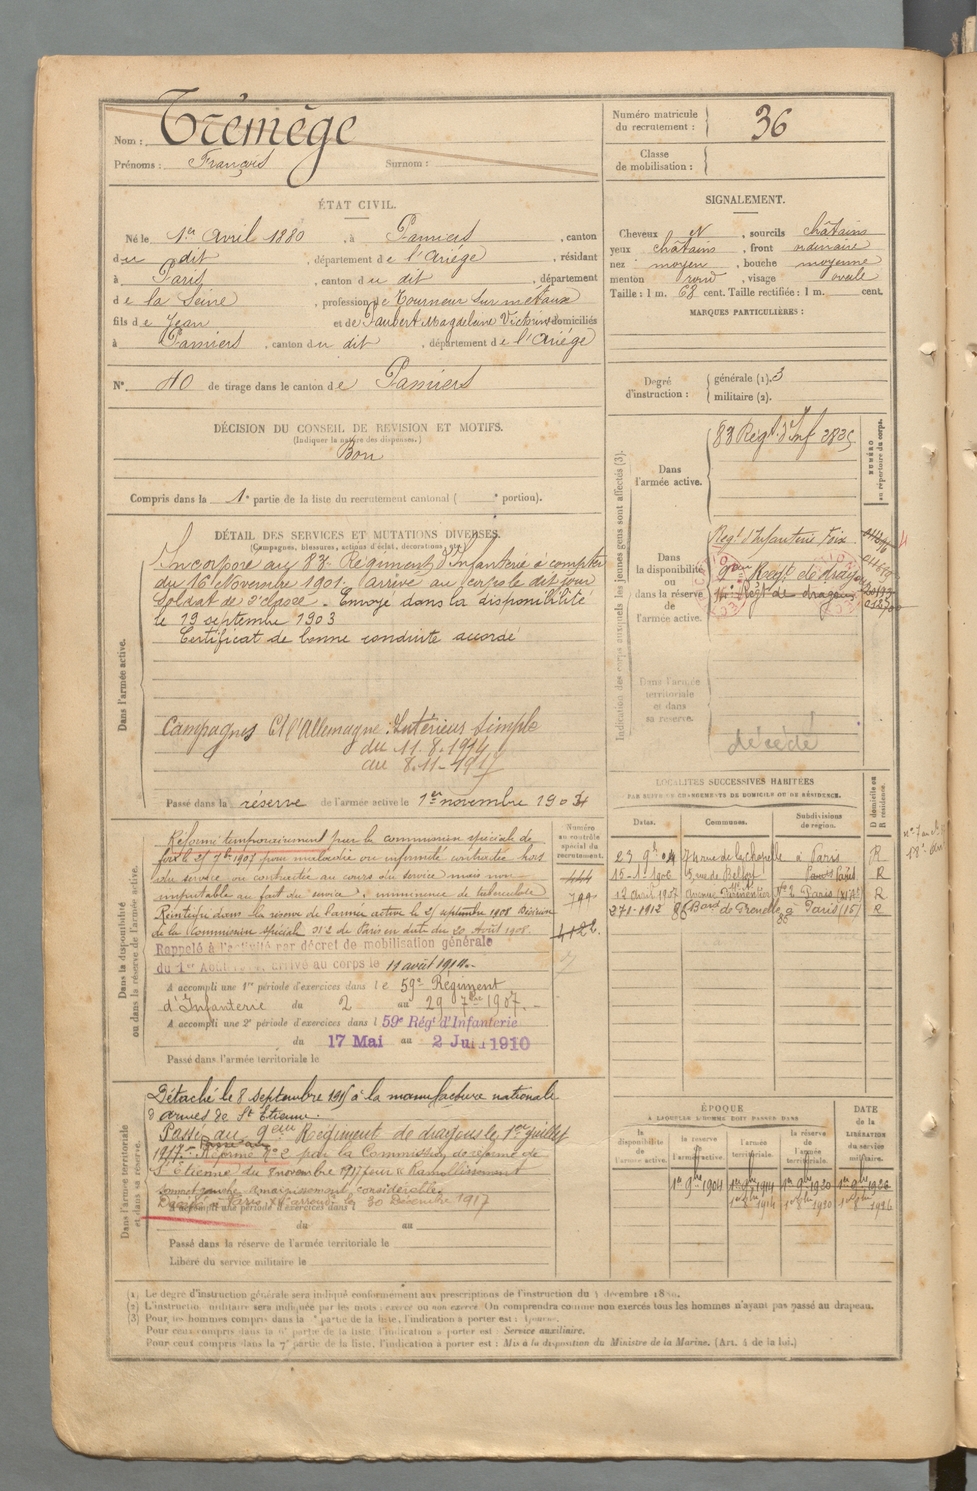 Nom : Trémège
Prénoms : François Surnom :
ÉTAT CIVIL.
Né le 1er Avril 1880, à Pamiers, canton
du dit, département de l'Ariège, résidant
à Paris, canton du dit, département
de la Seine, profession de Tourneur sur métaux
fils de Jean et de Jaubert Magdeleine Victorine domiciliés
à Pamiers, canton du dit, département de l'Ariège
N° 40 de tirage dans le canton de Pamiers
DÉCISION DU CONSEIL DE REVISION ET MOTIFS.
(Indiquer la nature des dispenses.)
Bon
Compris dans la 1e partie de la liste du recrutement cantonal ( e portion).
DÉTAIL DES SERVICES ET MUTATIONS DIVERSES.
(Campagnes, blessures, actions d'éclat, décorations, etc.)
Dans l'armée active.
Incorporé au 83e Régiment d'Infanterie à compter
du 16 Novembre 1901. Arrivé au corps le dit jour
Soldat de 2e classe. Envoyé dans la disponibilité
le 19 septembre 1903
Certificat de bonne conduite accordé
Campagnes Ct l'Allemagne : Intérieur simple
du 11.8.1914
au 8.11-1917
Passé dans la réserve de l'armée active le 1er novembre 1904
Dans la disponibilité
ou dans la réserve de l'armée active.
Réformé temporairement par la commission spéciale de
foix le 27 7bre 1907 pour maladie ou infirmité contractée hors
du service ou contractée au cours du service mais non
imputable au fait du service : imminence de tuberculose
Réintégré dans la réserve de l'armée active le 27 septembre 1908 Décision
de la Commission spéciale N°2 de Paris en date du 20 Août 1908.
Rappelé à l'activité par décret de mobilisation générale
du 1er Août 1914. Arrivé au corps le 11 août 1914.
A accompli une 1re période d'exercices dans le 59e Régiment
d'Infanterie du 2 au 29 7bre 1907.
A accompli une 2e période d'exercices dans l 59e Régt d'Infanterie
du 17 Mai au 2 Juin 1910
Passé dans l'armée territoriale le
Numéro
au contrôle
spécial du
recrutement.
444
799
4122
Dans l'armée territoriale
et dans sa réserve.
Détaché le 8 septembre 1915 à la manufacture nationale
d'armes de St Etienne.
Passé au 9eme Régiment de dragons le 1er juillet
1917. Réformé n°2 par la Commission de réforme de
St Etienne du 8 novembre 1917 pour « Ramollissement
sommet gauche Amaigrissement considérable
Décédé à Paris, le 30 Décembre 1917
A accompli une période d'exercices dans l
du au
Passé dans la réserve de l'armée territoriale le
Libéré du service militaire le
Numéro matricule
du recrutement : 36
Classe
de mobilisation :
SIGNALEMENT.
Cheveux N, sourcils châtains
yeux châtains, front ordinaire
nez moyen, bouche moyenne
menton rond, visage ovale
Taille : 1 m. 68 cent. Taille rectifiée : 1 m. cent.
MARQUES PARTICULIÈRES :
Degré
d'instruction :
générale (1). 3
militaire (2).
Indication des corps auxquels les jeunes gens sont affectés (3).
NUMÉRO
au répertoire du corps.
Dans
l'armée active.
83 Régt d'Inf 3825
Dans
la disponibilité
ou
dans la réserve
de
l'armée active.
Regt d'Infanterie Foix
9eme Regt de dragons
Régt de dragons
Dans l'armée
territoriale
et dans
sa réserve.
décédé
LOCALITÉS SUCCESSIVES HABITÉES
PAR SUITE DE CHANGEMENTS DE DOMICILE OU DE RÉSIDENCE.
Dates. Communes. Subdivisions
de région.
D domicile ou
R résidence.
23 9bre 04 74 rue de la chapelle à Paris R
15-1-1906 13 rue de Belfort Paris R
12 Avril 1907 Avenue Parmentier N°2 Paris R
27 1-1912 86 Bard de Grenelle à Paris (15) R
ÉPOQUE
À LAQUELLE L'HOMME DOIT PASSER DANS
la
disponibilité
de
l'armée active.
la réserve
de
l'armée active.
l'armée
territoriale.
la réserve
de
l'armée
territoriale.
DATE
de la
LIBÉRATION
du service
militaire.
1er 9bre 1904 1er 9bre 1914 1er 9bre 1920 1er 9bre 1926
1er 8bre 1914 1er 8bre 1920 1er 8bre 1926
(1) Le degré d'instruction générale sera indiqué conformément aux prescriptions de l'instruction du 4 décembre 1889.
(2) L'instruction militaire sera indiquée par les mots : exercé ou non exercé. On comprendra comme non exercés tous les hommes n'ayant pas passé au drapeau.
(3) Pour les hommes compris dans la partie de la liste, l'indication à porter est :
Pour ceux compris dans la 6e partie de la liste, l'indication à porter est : Service auxiliaire.
Pour ceux compris dans la 7e partie de la liste, l'indication à porter est : Mis à la disposition du Ministre de la Marine. (Art. 4 de la loi.)